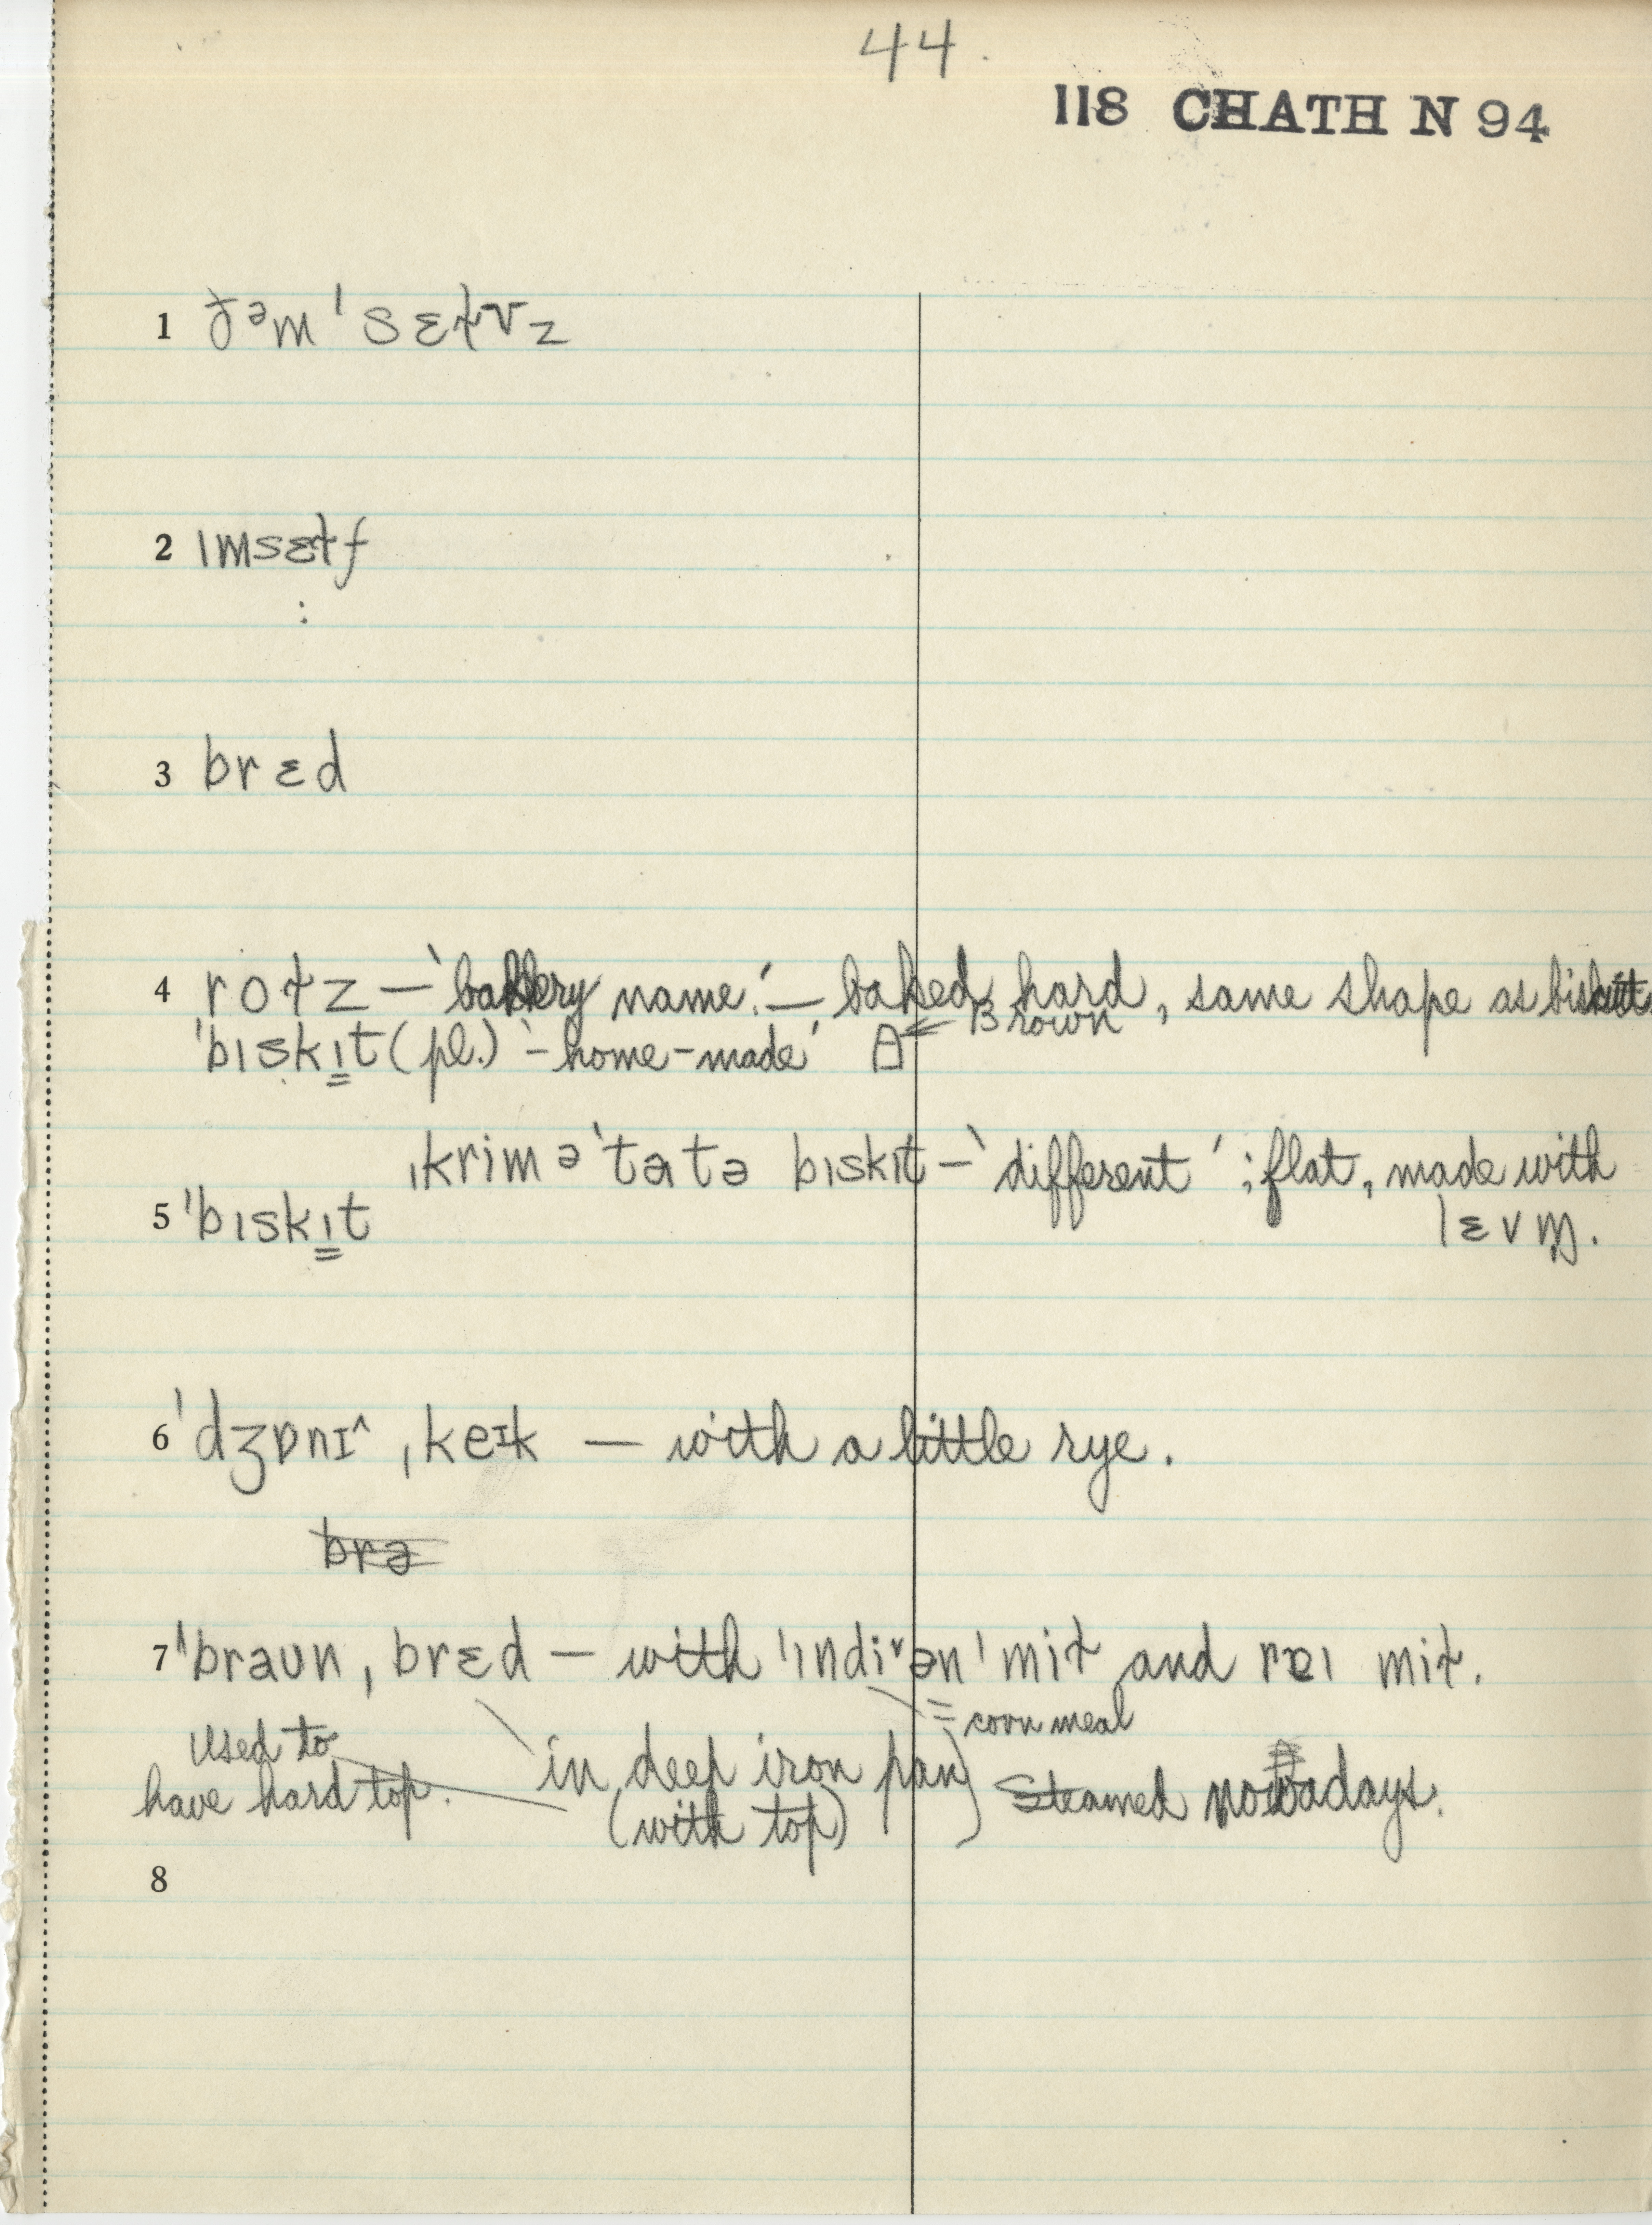 44.
118 CHATH N 94
1 ðəm ˈsɛɫvz
2 ɪmsɛɫf
:
3 brɛd
4 roɫz – 'bakery name.' – baked hard, same shape as biscuit
ˈbɪskɪt (pl.) '– home-made' A ← Brown
ˌkrim əˈtatə bɪskɪt – 'different'; flat, made with
lɛvn̩.
5 ˈbɪskɪt
6 ˈdʒɒnɪ^ ˌkeɪk – with a little rye.
brə
7 ˈbraun ˌbrɛd – with ˈɪndiᵛənˈmiɫ and rɐɪ miɫ.
= corn meal
Used to
have hard top. in deep iron pan) Steamed nowadays.
(with top)
8